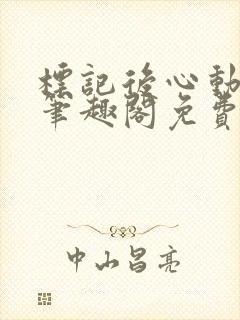 標記後心動
筆趣閣免費
中山昌亮